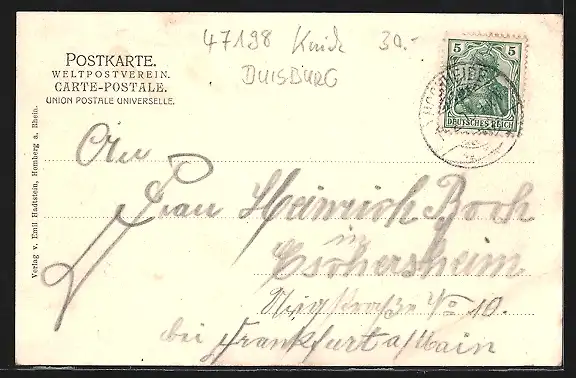 47198 Kuide 30.-
DUISBURG
POSTKARTE.
WELTPOSTVEREIN.
CARTE-POSTALE.
UNION POSTALE UNIVERSELLE.
5 5
DEUTSCHES REICH
Verlag v. Emil Hadtstein, Homberg a. Rhein.
An
Frau Heinrich Boch
in
Eschersheim
No 10.
bei Frankfurt a/Main